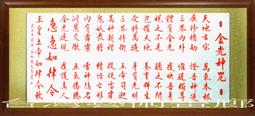 金光神咒
天地玄宗 萬氣本根
廣修億劫 證吾神通
三界內外 惟道獨尊
體有金光 覆映吾身
視之不見 聽之不聞
包羅天地 養育群生
受持萬遍 身有光明
三界侍衛 五帝司迎
萬神朝禮 役使雷霆
鬼妖喪膽 精怪亡形
內有霹靂 雷神隱名
洞慧交徹 五氣騰騰
金光速現 覆護真人
急急如律令
玉皇上帝如律令